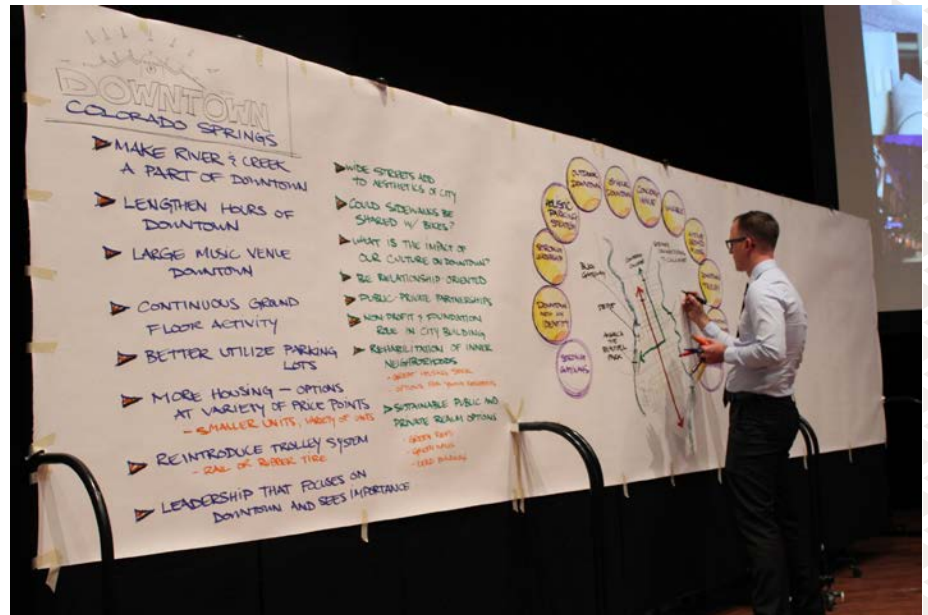 DOWNTOWN
COLORADO SPRINGS
MAKE RIVER & CREEK
A PART OF DOWNTOWN
LENGTHEN HOURS OF
DOWNTOWN
LARGE MUSIC VENUE
DOWNTOWN
CONTINUOUS GROUND
FLOOR ACTIVITY
BETTER UTILIZE PARKING
LOTS
MORE HOUSING – OPTIONS
AT VARIETY OF PRICE POINTS
- SMALLER UNITS, VARIETY OF UNITS
REINTRODUCE TROLLEY SYSTEM
- RAIL OR RUBBER TIRE
LEADERSHIP THAT FOCUSES ON
DOWNTOWN AND SEES IMPORTANCE
WIDE STREETS ADD
TO AESTHETICS OF CITY
COULD SIDEWALKS BE
SHARED W/ BIKES?
WHAT IS THE IMPACT OF
OUR CULTURE ON DOWNTOWN?
BE RELATIONSHIP-ORIENTED
PUBLIC-PRIVATE PARTNERSHIPS
NON PROFIT & FOUNDATION
ROLE IN CITY BUILDING
REHABILITATION OF INNER
NEIGHBORHOODS
- GREAT HOUSING STOCK
SUSTAINABLE PUBLIC AND
PRIVATE REALM OPTIONS
OUTDOOR
DOWNTOWN
CONCERT
VENUE
HOLISTIC
PARKING
SYSTEM
STRONG
LEADERSHIP
DOWNTOWN
IDENTITY
STRONG
GATEWAYS
DEPOT